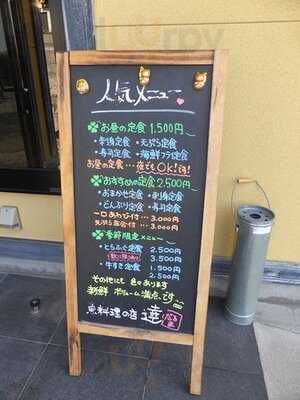 人気メニュー
お昼の定食 1,500円
・刺身定食 ・天ぷら定食
・寿司定食 ・海鮮フライ定食
お昼の定食…夜でもOK!です!
おすすめの定食 2,500円
・おまかせ定食 ・刺身定食
・どんぶり定食 ・寿司定食
一口あわび付…3,000円
天ぷら茶碗付…3,000円
季節限定メニュー
・とらふぐ定食 2,500円
3,500円
・牛すき定食 1,500円
2,500円
その他にも 色々あります
新鮮 ボリューム満点です
魚料理の店 達